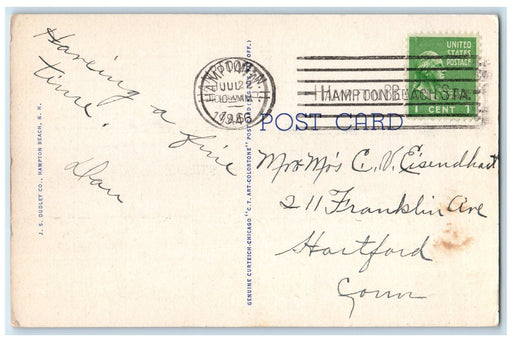 Haveing a fine
time.
Dan
J. S. DUDLEY CO., HAMPTON BEACH, N. H.
GENUINE CURTEICH-CHICAGO "C.T. ART-COLORTONE" POST CARD (REG. U.S. PAT. OFF.)
HAMPTON N.H.
JUL 2
1946
HAMPTON BEACH STA.
UNITED
STATES
POSTAGE
CENT 1
POST CARD
Mr + Mrs C. V. Eisendhart
211 Franklin Ave
Hartford
Conn